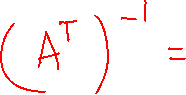 (A^T)^{-1} =